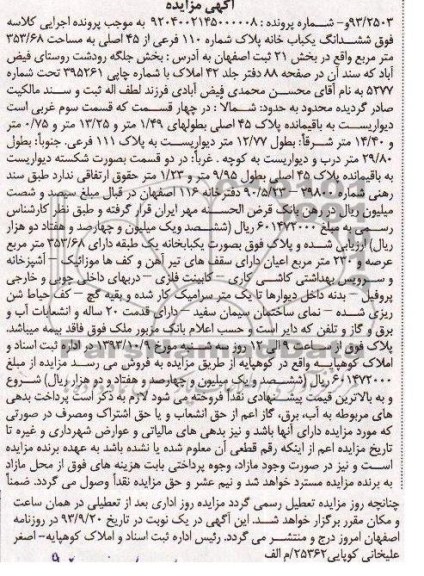 آگهی مزایده
۹۳/۲۵۰۳و– شماره پرونده : ۹۲۰۴۰۰۲۱۴۵۰۰۰۰۰۸ به موجب پرونده اجرایی کلاسه
فوق ششدانگ یکباب خانه پلاک شماره ۱۱۰ فرعی از ۴۵ اصلی به مساحت ۳۵۳/۶۸
متر مربع واقع در بخش ۲۱ ثبت اصفهان به آدرس : بخش جلگه رودشت روستای فیض
آباد که سند آن در صفحه ۸۸ دفتر جلد ۴۲ املاک با شماره چاپی ۳۹۵۲۶۱ تحت شماره
۵۲۷۷ به نام آقای محسن محمدی فیض آبادی فرزند لطف اله ثبت و سند مالکیت
صادر گردیده محدود به حدود: شمالا : در چهار قسمت که قسمت سوم غربی است
دیواریست به باقیمانده پلاک ۴۵ اصلی بطولهای ۱/۴۹ متر و ۱۳/۲۵ متر و ۰/۷۵ متر
و ۱۴/۴۰ متر شرقاً: بطول ۱۲/۷۷ متر دیواریست به پلاک ۱۱۱ فرعی. جنوبا: بطول
۲۹/۸۰ متر درب و دیواریست به کوچه . غرباً: در دو قسمت بصورت شکسته دیواریست
به باقیمانده پلاک ۴۵ اصلی بطول ۹/۹۵ متر و ۱/۲۳ متر حقوق ارتفاقی ندارد طبق سند
رهنی شماره ۲۹۸۰۰ – ۹۰/۵/۲۳ دفترخانه ۱۱۶ اصفهان در قبال مبلغ سیصد و شصت
میلیون ریال در رهن بانک قرض الحسنه مهر ایران قرار گرفته و طبق نظر کارشناس
رسمی به مبلغ ۶۰۱۴۷۲۰۰۰ ریال (ششصد ویک میلیون و چهارصد و هفتاد دو هزار
ریال) ارزیابی شده و پلاک فوق بصورت یکبابخانه یک طبقه دارای ۳۵۳/۶۸ متر مربع
عرصه و ۲۳۰ متر مربع اعیان دارای سقف های تیر آهن و کف ها موزائیک – آشپزخانه
و سرویس بهداشتی کاشی کاری – کابینت فلزی – دربهای داخلی چوبی و خارجی
پروفیل – بدنه داخل دیوارها تا یک متر سرامیک کار شده و بقیه گچ – کف حیاط شن
ریزی شده – نمای ساختمان سیمان سفید – دارای قدمت ۲۰ ساله و انشعابات آب و
برق و گاز و تلفن که دایر است و حسب اعلام بانک مزبور ملک فوق فاقد بیمه میباشد.
پلاک فوق از ساعت ۹ الی ۱۲ روز سه شنبه مورخ ۱۳۹۳/۱۰/۹ در اداره ثبت اسناد و
املاک کوهپایه واقع در کوهپایه از طریق مزایده به فروش می رسد مزایده از مبلغ
۶۰۱۴۷۲۰۰۰ ریال (ششصد ویک میلیون و چهارصد و هفتاد و دو هزار ریال) شروع
و به بالاترین قیمت پیشنهادی نقداً فروخته می شود لازم به ذکر است پرداخت بدهی
های مربوطه به آب، برق، گاز اعم از حق انشعاب و یا حق اشتراک ومصرف در صورتی
که مورد مزایده دارای آنها باشد و نیز بدهی های مالیاتی و عوارض شهرداری و غیره تا
تاریخ مزایده اعم از اینکه رقم قطعی آن معلوم شده یا نشده باشد به عهده برنده مزایده
است و نیز در صورت وجود مازاد، وجوه پرداختی بابت هزینه های فوق از محل مازاد
به برنده مزایده مسترد خواهد شد و نیم عشر و حق مزایده نقداً وصول می گردد. ضمناً
چنانچه روز مزایده تعطیل رسمی گردد مزایده روز اداری بعد از تعطیلی در همان ساعت
و مکان مقرر برگزار خواهد شد. این آگهی در یک نوبت در تاریخ ۹۳/۹/۲۰ در روزنامه
اصفهان امروز درج و منتشر می گردد. رئیس اداره ثبت اسناد و املاک کوهپایه– اصغر
علیخانی کوپایی۲۵۳۶۲/م الف
ParsNamadData